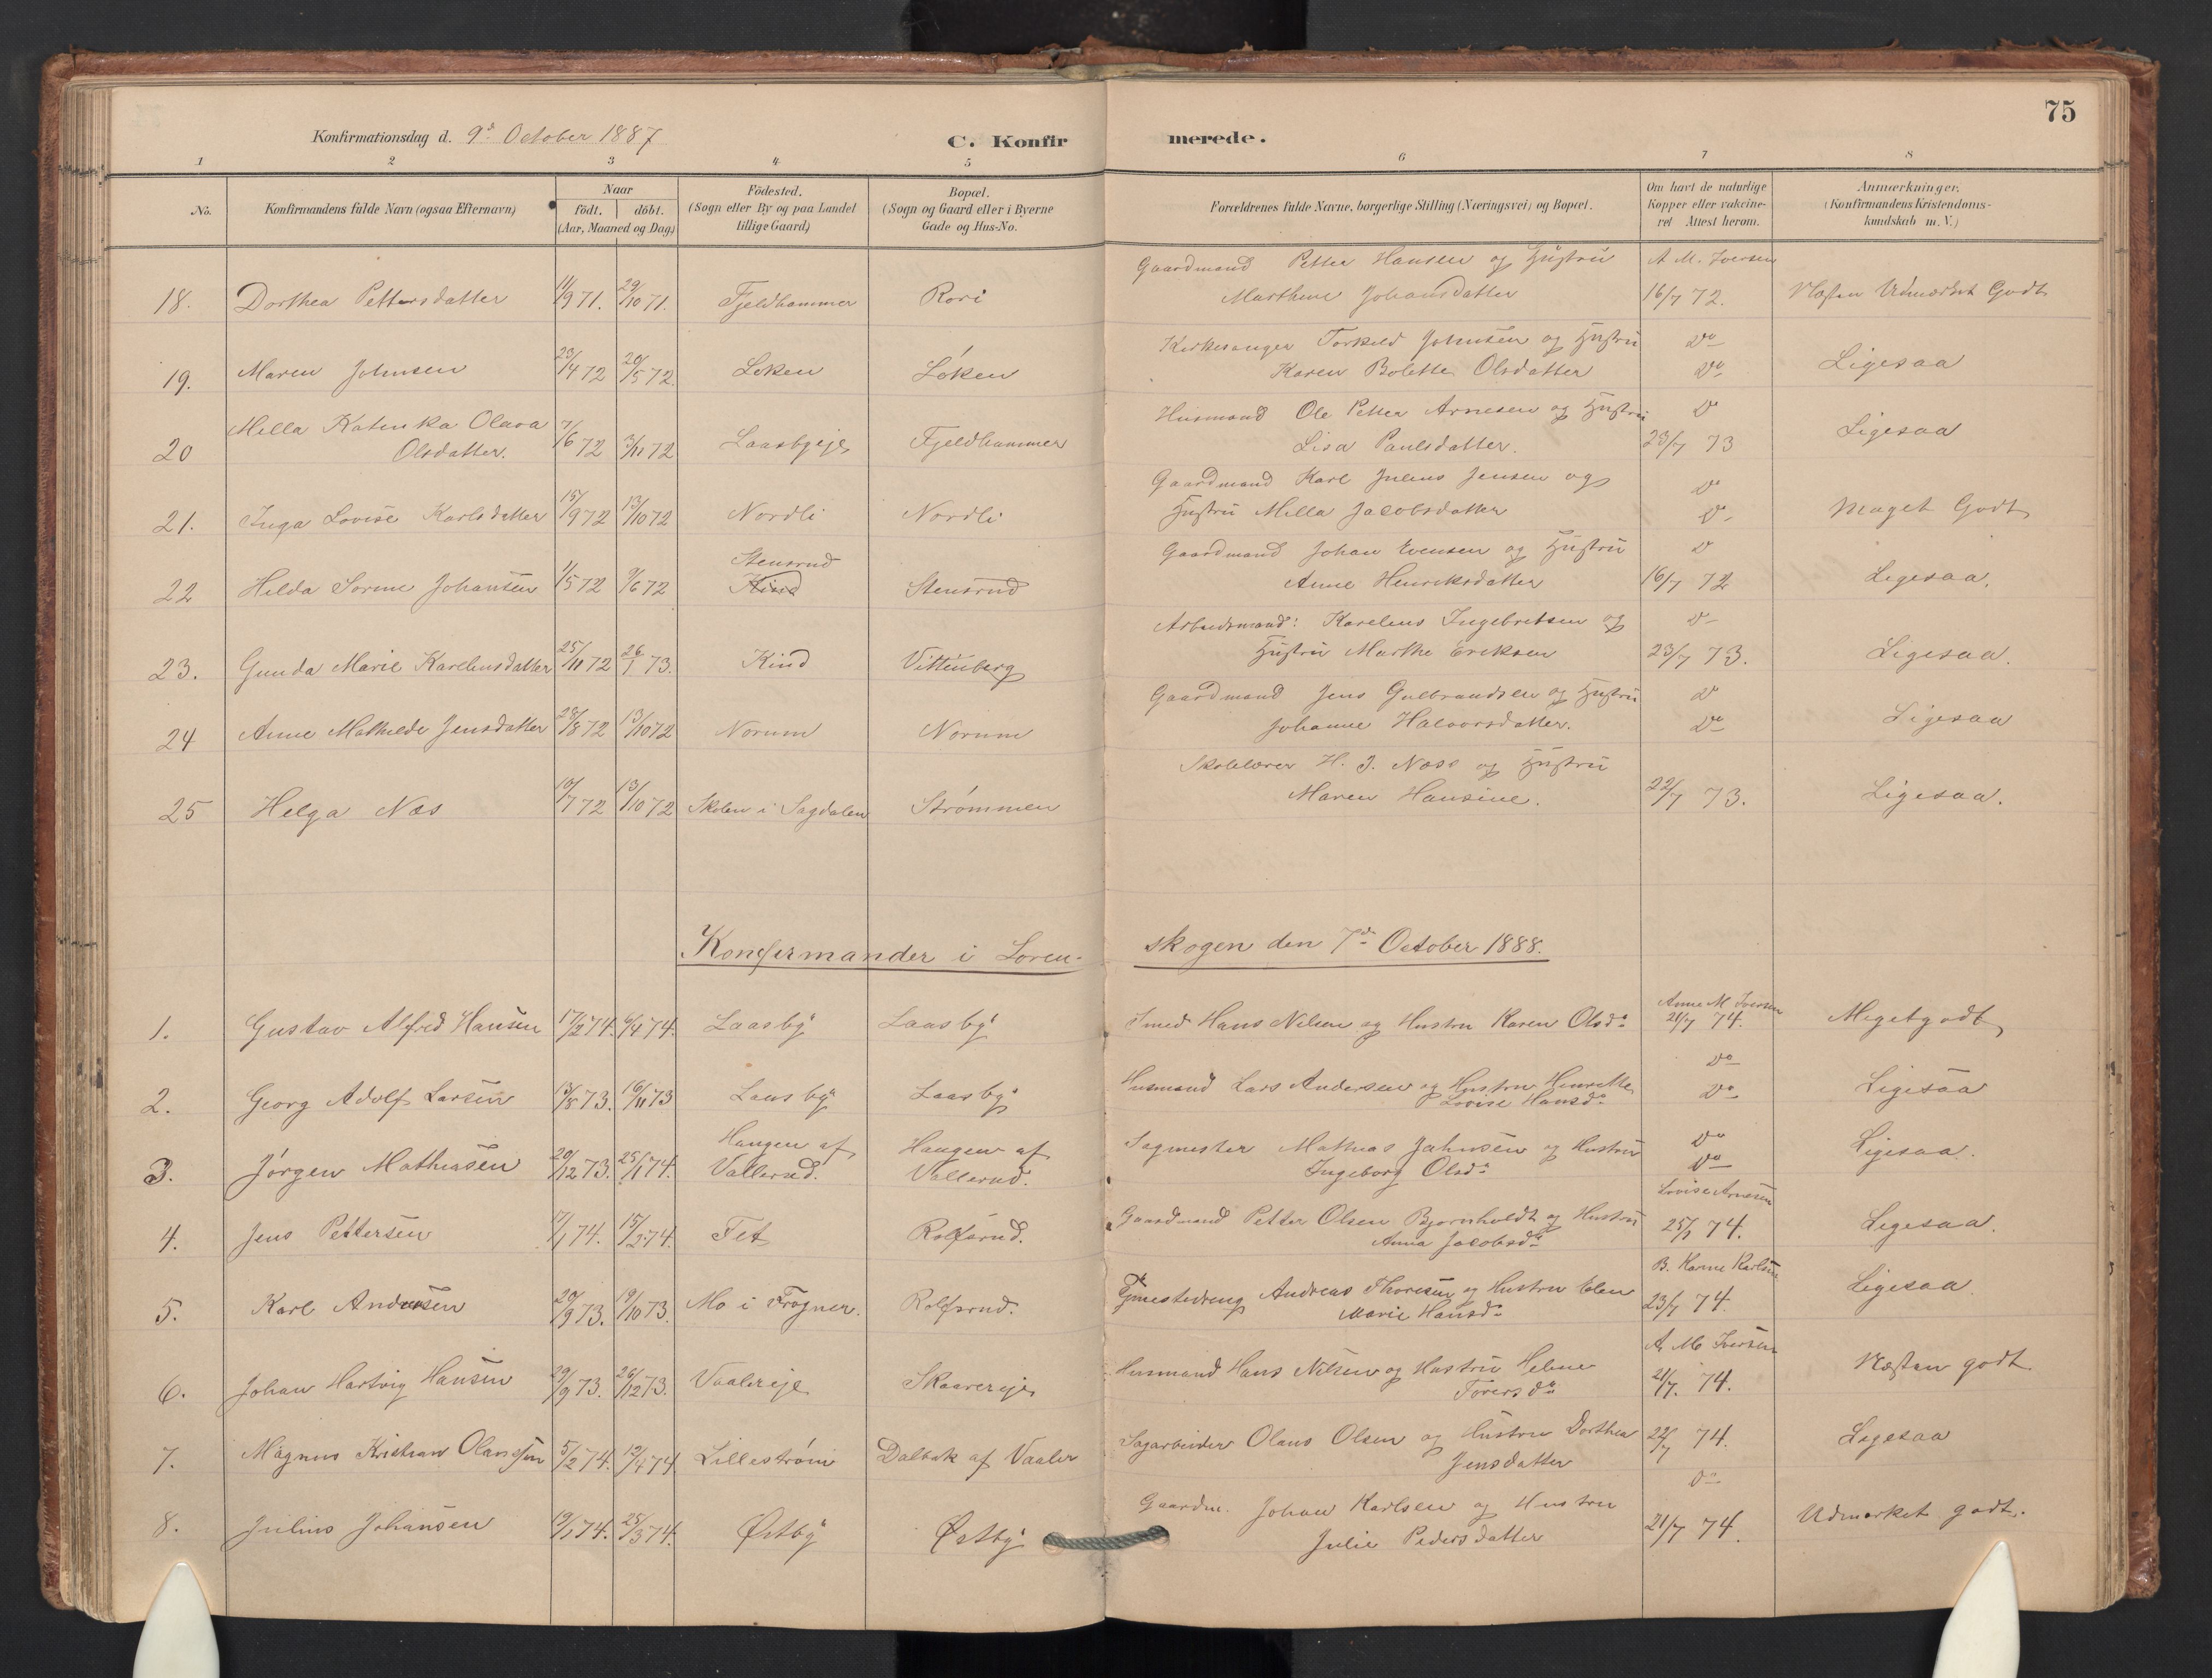 75
Konfirmationsdag d. 9d October 1887
C. Konfirmerede.
1 2 3 4 5 6 7 8
No.
Konfirmandens fulde Navn (ogsaa Efternavn)
Naar
födt. döbt.
(Aar, Maaned og Dag)
Födested.
(Sogn eller By og paa Landet
tillige Gaard)
Bopæl.
(Sogn og Gaard eller i Byerne
Gade og Hus-No.
Forældrenes fulde Navne, borgerlige Stilling (Næringsvei) og Bopæl.
Om havt de naturlige
Kopper eller vakcine-
ret Attest herom.
Anmærkninger.
(Konfirmandens Kristendoms-
kundskab m. V.)
Gaardmand Petter Hansen og Hustru A M. Iversen
18. Dorthea Pettersdatter 11/9 71. 29/10 71. Fjeldhammer Rori Marthine Johansdatter 16/7 72. Næsten Udmærket Godt
Kirkesanger Torkild Johnsen og Hustru Do
19. Maren Johnsen 23/4 72 20/5 72. Løken Løken Karen Bolette Olsdatter Do Ligesaa
Milla Katinka Olava Husmand Ole Petter Arnesen og Hustru D
20 Olsdatter. 7/6 72 3/11 72 Laasbyeje Fjeldhammer Lisa Paulsdatter. 23/7 73 Ligesaa
Gaardmand Karl Julius Jensen og Do
21. Inga Lovise Karlsdatter 15/9 72 13/10 72 Nordli Nordli Hustru Milla Jacobsdatter D- Maget Godt
Stensrud Gaardmand Johan Evensen og Hustru D
22 Hilda Sorine Johansen 1/5 72 9/6 72 Kind Stensrud Anne Henriksdatter 16/7 72 Ligesaa.
Arbeidsmand: Karelius Ingebretsen og D-
23. Gunda Marie Kareliusdatter 25/11 72 26/1 73. Kind Vittenberg Hustru Marthe Eriksen 23/7 73. Ligesaa.
Gaardmand Jens Gulbrandsen og Hustru D
24 Anne Mathilde Jensdatter 28/8 72 13/10 72 Norum Norum Johanne Halvorsdatter. Do Ligesaa
Skolelærer H. J. Næss og Hustru
25 Helga Næs 10/7 72 13/10 72 Skolen i Sagdalen Strømmen Maren Hansine. 22/7 73. Ligesaa.
Konfirmander i Lørenskogen den 7de October 1888.
Anne M Iversen
1. Gustav Alfred Hansen 17/2 74. 6/4 74. Laasby Laasby Smed Hans Nilsen og Hustru Karen Olsdr 21/7 74. Megetgodt
Do
2. Georg Adolf Larsen 13/8 73. 16/11 73 Laasby Laasby Husmand Lars Andersen og Hustru Henrette Do Ligesaa
Lovise Hansdr
Haugen af Haugen af Sagmester Mathias Jahnsen og Hustru Do
3. Jørgen Mathiasen 20/12 73. 25/1 74. Vallerud. Vallerud. Ingeborg Olsdr Do Ligesaa.
Lovise Arnesen
4. Jens Pettersen 17/1 74. 15/2 74. Fet Rolfsrud. Gaardmand Petter Olsen Bjørnholdt og Hustru 25/7 74. Ligesaa.
Anna Jacobsdr
B. Karine Karlsen
5. Karl Andersen 20/9 73. 19/10 73. Mo i Frogner. Rolfsrud. Tjenestedreng Andreas Thoresen og Hustru Elen 23/7 74. Ligesaa.
Marie Hansdr
A. M. Iversen
6. Johan Hartvig Hansen 29/9 73. 26/12 73. Vaalereje Skaarereje Husmand Hans Nilsen og Hustru Helene 21/7. 74. Næsten godt
Torersdr
7. Magnus Kristian Olausen 5/2 74. 12/4 74. Lillestrøm Dalbak af Vaaler Sagarbeider Olaus Olsen og Hustru Dorthea 22/7 74. Ligesaa
Jensdatter Do
8. Julius Johansen 19/1 74. 25/3 74. Østby Østby Gaardm. Johan Karlsen og Hustru
Julie Pedersdatter 21/7 74. Udmærket godt.